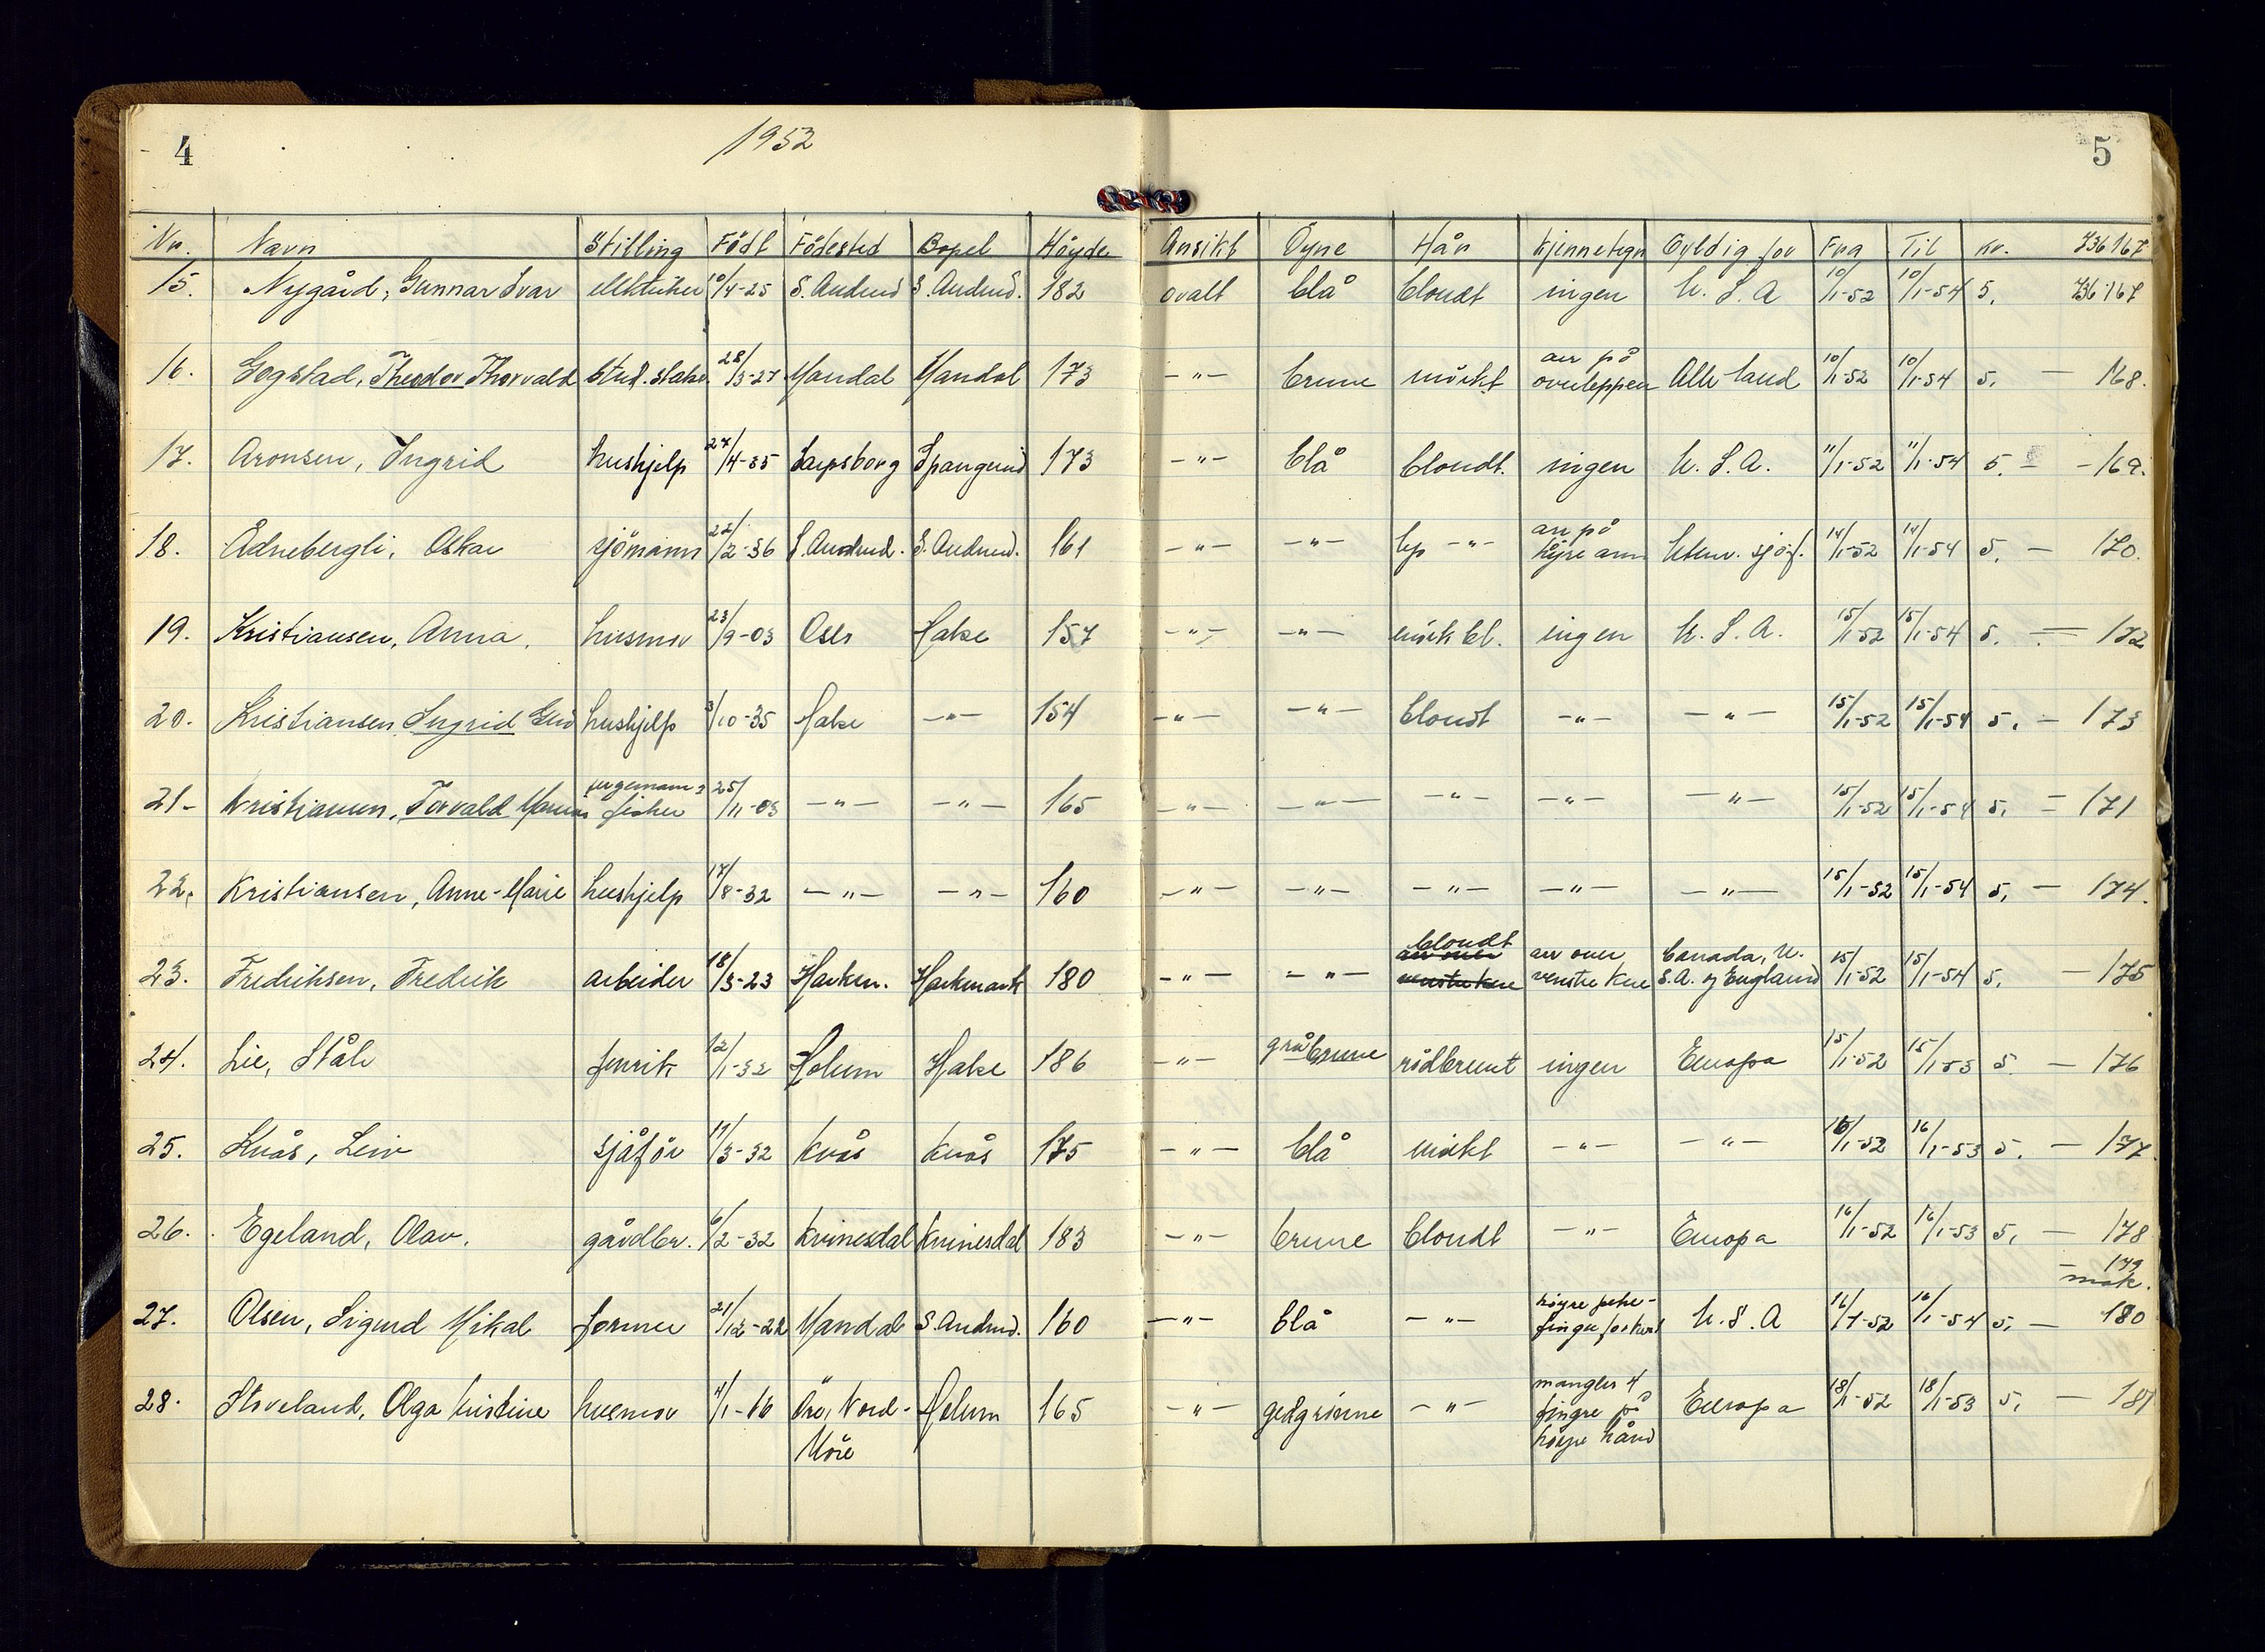 4
1952
5
Nr. Navn Stilling Födt Födested Bopel Höyde Ansikt Öyne Hår Kjennetegn Gyldig for Fra Til Kr. 736167
15. Nygård, Gunnar Ivar 10/4-25 S. Audned S. Audned. 182 ovalt blå blondt ingen U. S. A 10/1-52 10/1-54 5. 736167
16. Gogstad, Theodor Thorvald stud. 28/3-27 Mandal Mandal 173 -"- brune mörkt arr på overleppen Alle land 10/1-52 10/1-54 5. — 168.
17. Aronsen, Ingrid hushjelp 27/4-35 Sarpsborg Spangereid 173 -"- blå blondt. ingen U. S. A. 11/1-52 11/1-54 5. - -169.
18. Ådnebergli, Oskar sjömann 22/2-36 S. Audned. S. Audned. 161 -"- -"- -"- arr på höyre arm Utenr. sjöf. 14/1-52 14/1-54 5. — 170.
19. Kristiansen, Anna. husmor 23/9-03 Oslo Halse 157 -"- -"- mörk bl. ingen U. S. A. 15/1-52 15/1-54 5. — 172
20. Kristiansen Ingrid hushjelp 3/10-35 Halse -"- 154 -"- -"- blondt -"- -"- 15/1-52 15/1-54 5. — 173
21- Kristiansen, Torvald fisker 25/11-03 -"- -"- 165 -"- -"- -"- -"- -"- 15/1-52 15/1-54 5. = 171
22. Kristiansen, Anne-Marie hushjelp 17/8-32 -"- -"- 160 -"- -"- -"- -"- -"- 15/1-52 15/1-54 5. — 174.
23. Fredriksen, Fredrik arbeider 18/3-23 Harkm. Harkmark 180 -"- -"- blondt arr over venstre kne arr over venstre kne Canada, U. S. A. og England 15/1-52 15/1-54 5. — 175
24. Lie, Ståle fenrik 12/1-32 Holum Halse 186 -"- gråbrune rödbrunt ingen Europa 15/1-52 15/1-53 5. — 176
25. Kvås, Leiv sjåför 17/3-32 Kvås Kvås 175 -"- blå mörkt -"- -"- 16/1-52 16/1-53 5. — 177.
26. Egeland, Olav. gårdbr. 6/2-32 Kvinesdal Kvinesdal 183 -"- brune blondt -"- Europa 16/1-52 16/1-53 5. — 178
— 179 mak.
27. Olsen, Sigurd Mikal former 21/12-22 Mandal S. Audned. 160 -"- blå -"- höyre peke-finger forkort U. S. A 16/1-52 16/1-54 5. — 180
28. Stoveland, Olga Kristine husmor 4/1-16 Öre, Nord-Möre Holum 165 -"- gulgrönne -"- mangler 4 fingre på höyre hånd Europa 18/1-52 18/1-53 5. — 181